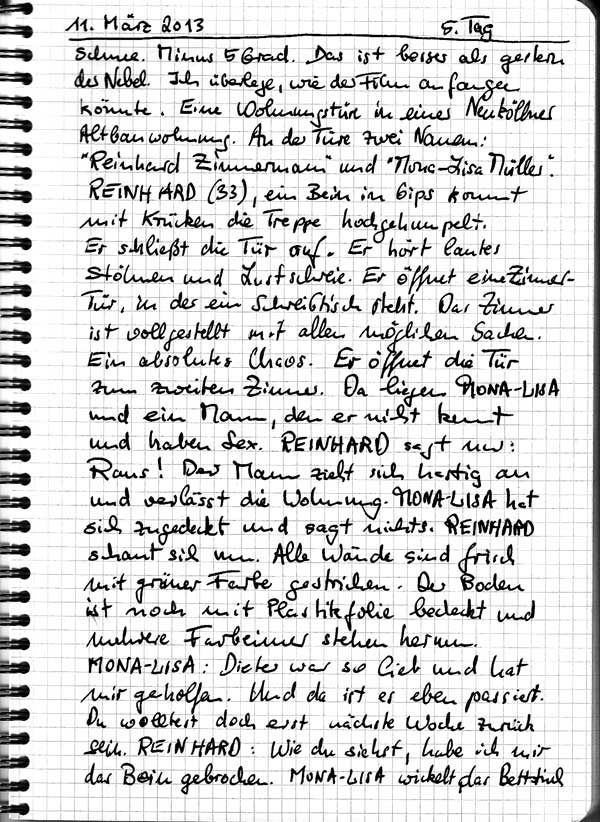 11. März 2013 5. Tag
Schnee. Minus 5 Grad. Das ist besser als gestern
der Nebel. Ich überlege, wie der Film anfangen
könnte. Eine Wohnungstür in einer Neuköllner
Altbauwohnung. An der Türe zwei Namen:
"Reinhard Zimmermann" und "Mona-Lisa Müller".
REINHARD (33), ein Bein in Gips kommt
mit Krücken die Treppe hochgehumpelt.
Er schließt die Tür auf. Er hört lautes
Stöhnen und Lustschreie. Er öffnet eine Zimmer-
Tür, in der ein Schreibtisch steht. Das Zimmer
ist vollgestellt mit allen möglichen Sachen.
Ein absolutes Chaos. Er öffnet die Tür
zum zweiten Zimmer. Da liegen MONA-LISA
und ein Mann, den er nicht kennt
und haben Sex. REINHARD sagt nur:
Raus! Der Mann zieht sich hastig an
und verlässt die Wohnung. MONA-LISA hat
sich zugedeckt und sagt nichts. REINHARD
schaut sich um. Alle Wände sind frisch
mit grüner Farbe gestrichen. Der Boden
ist noch mit Plastikfolie bedeckt und
mehrere Farbeimer stehen herum.
MONA-LISA: Dieter war so lieb und hat
mir geholfen. Und da ist es eben passiert.
Du wolltest doch erst nächste Woche zurück
sein. REINHARD: Wie du siehst, habe ich mir
das Bein gebrochen. MONA-LISA wickelt das Betttuch